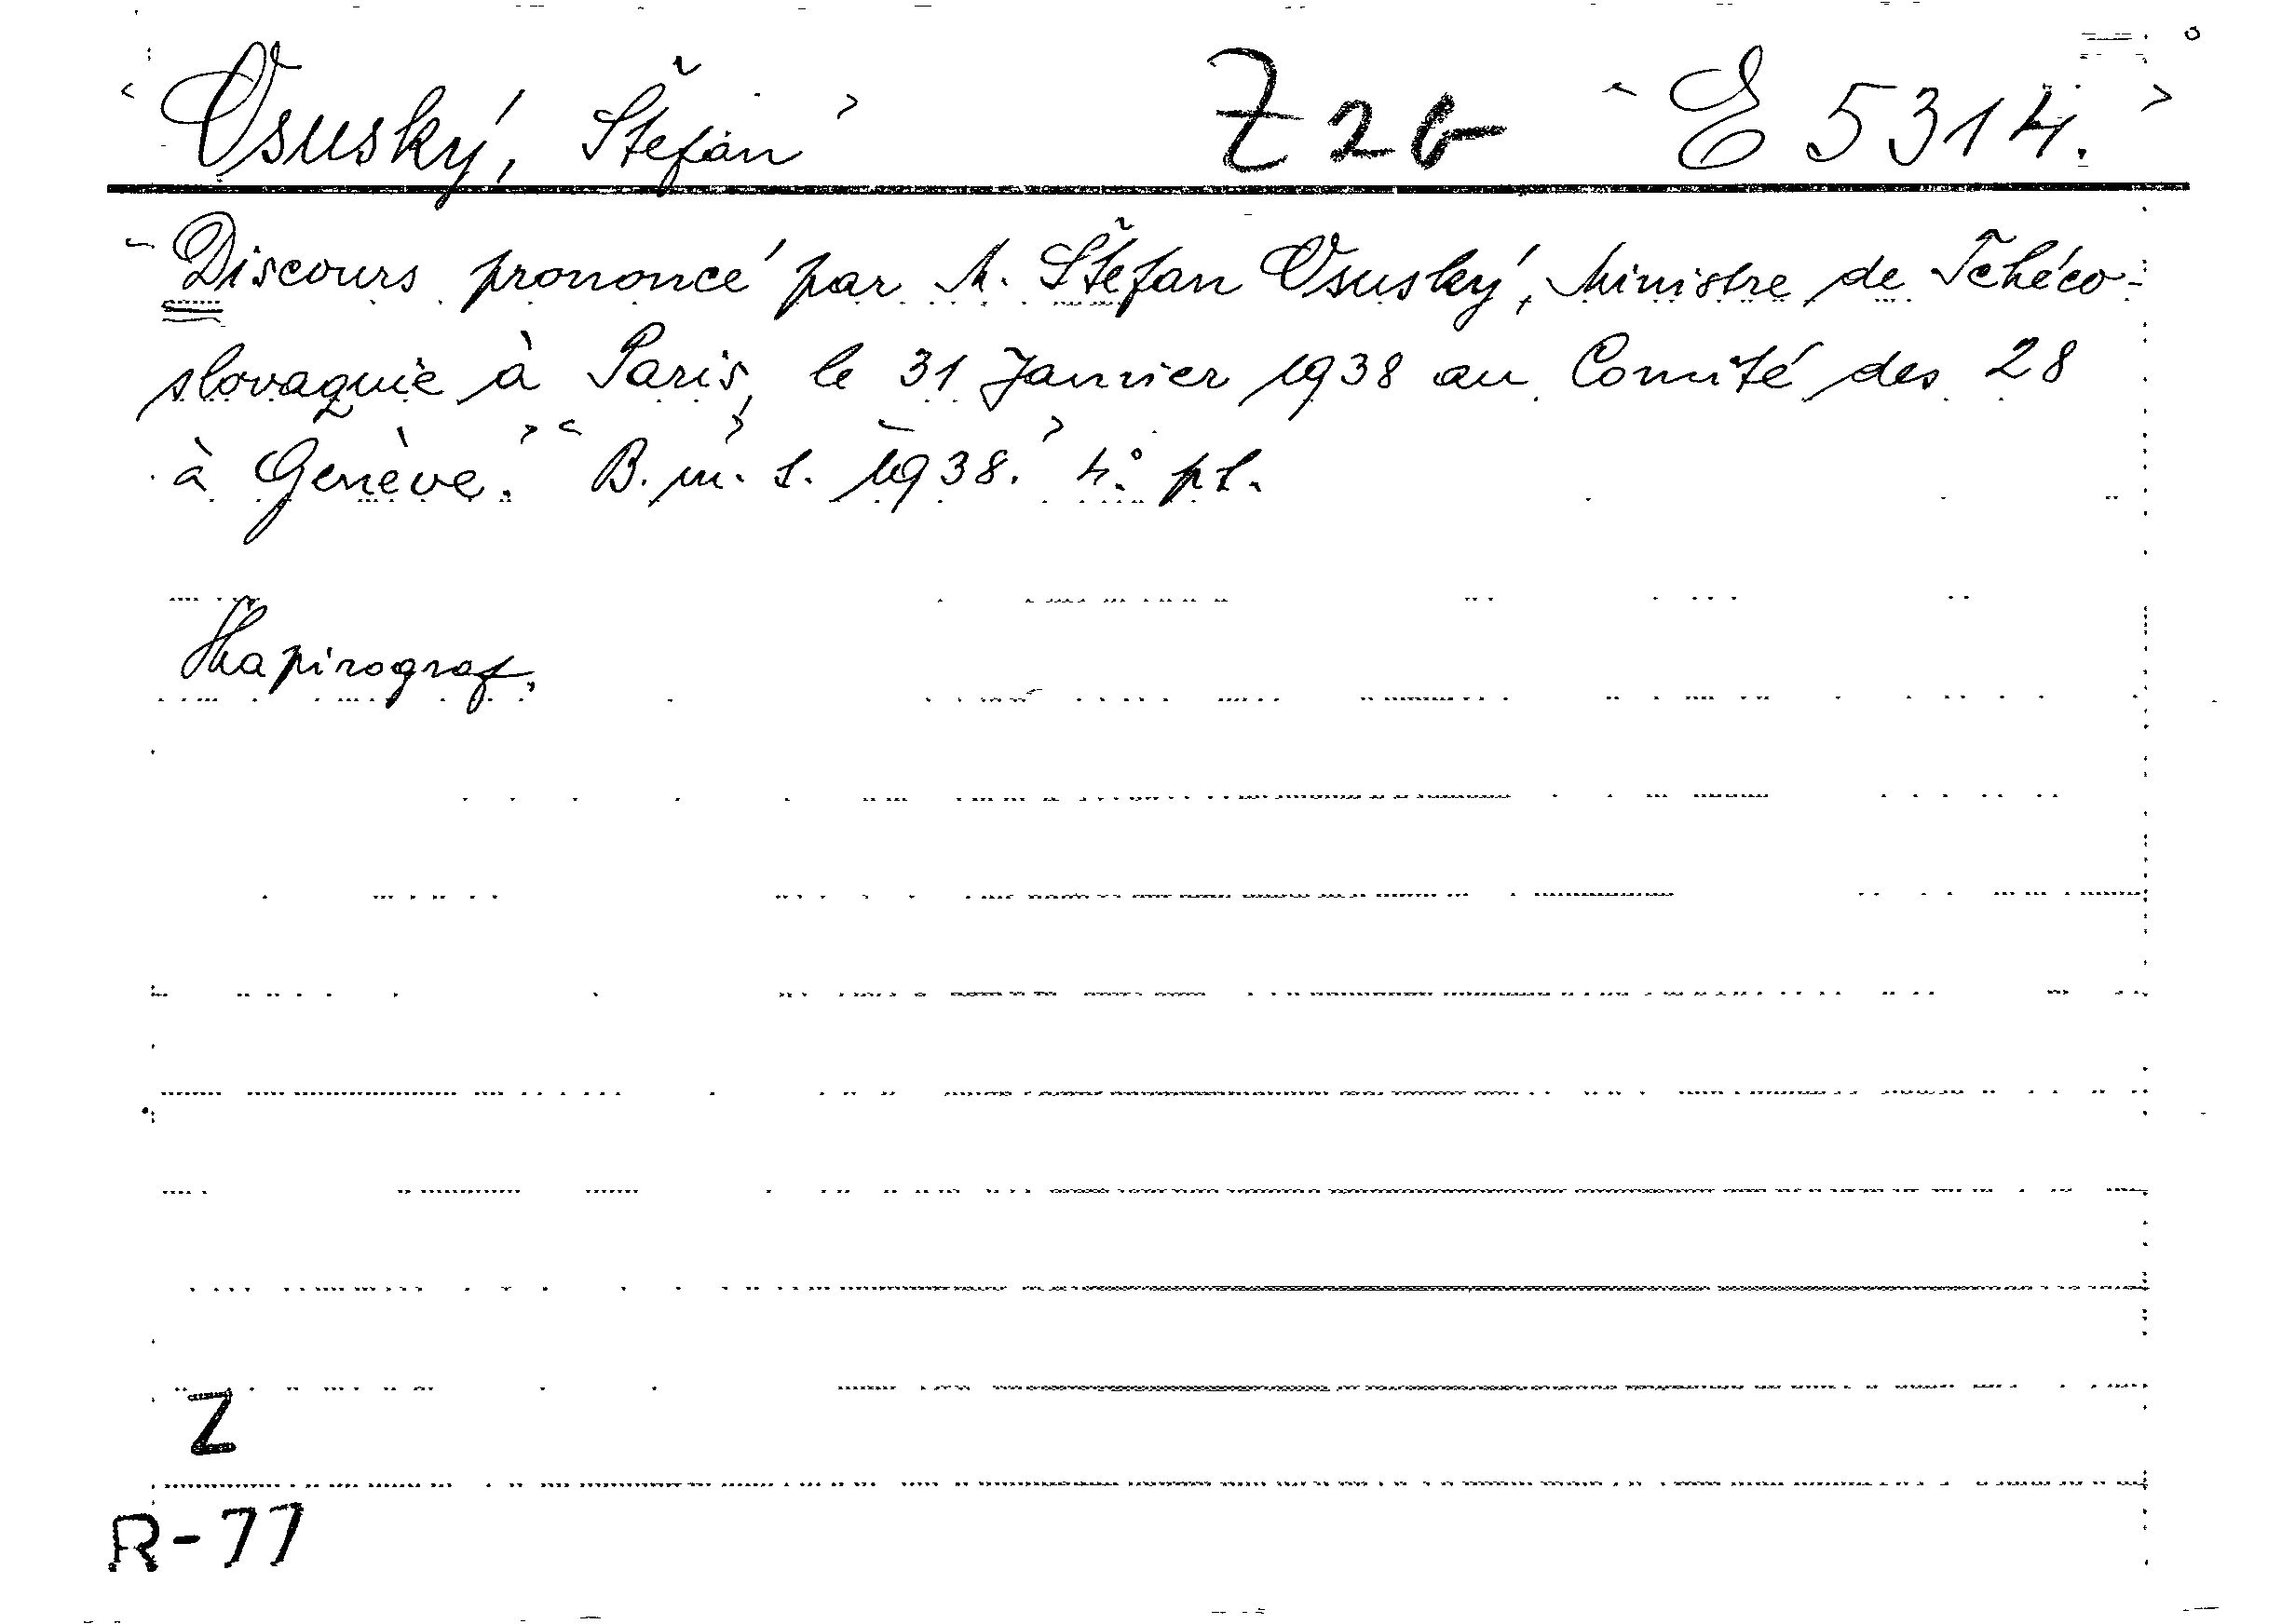 Osuský, Štefan Z 26 E 5314.
Discours prononcé par M. Štefan Osuský, Ministre de Tchéco-
slovaquie à Paris, le 31 Janvier 1938 au Comité des 28
à Genève. B. m. 1938. 4°.
Šapirograf.
Z
R-77